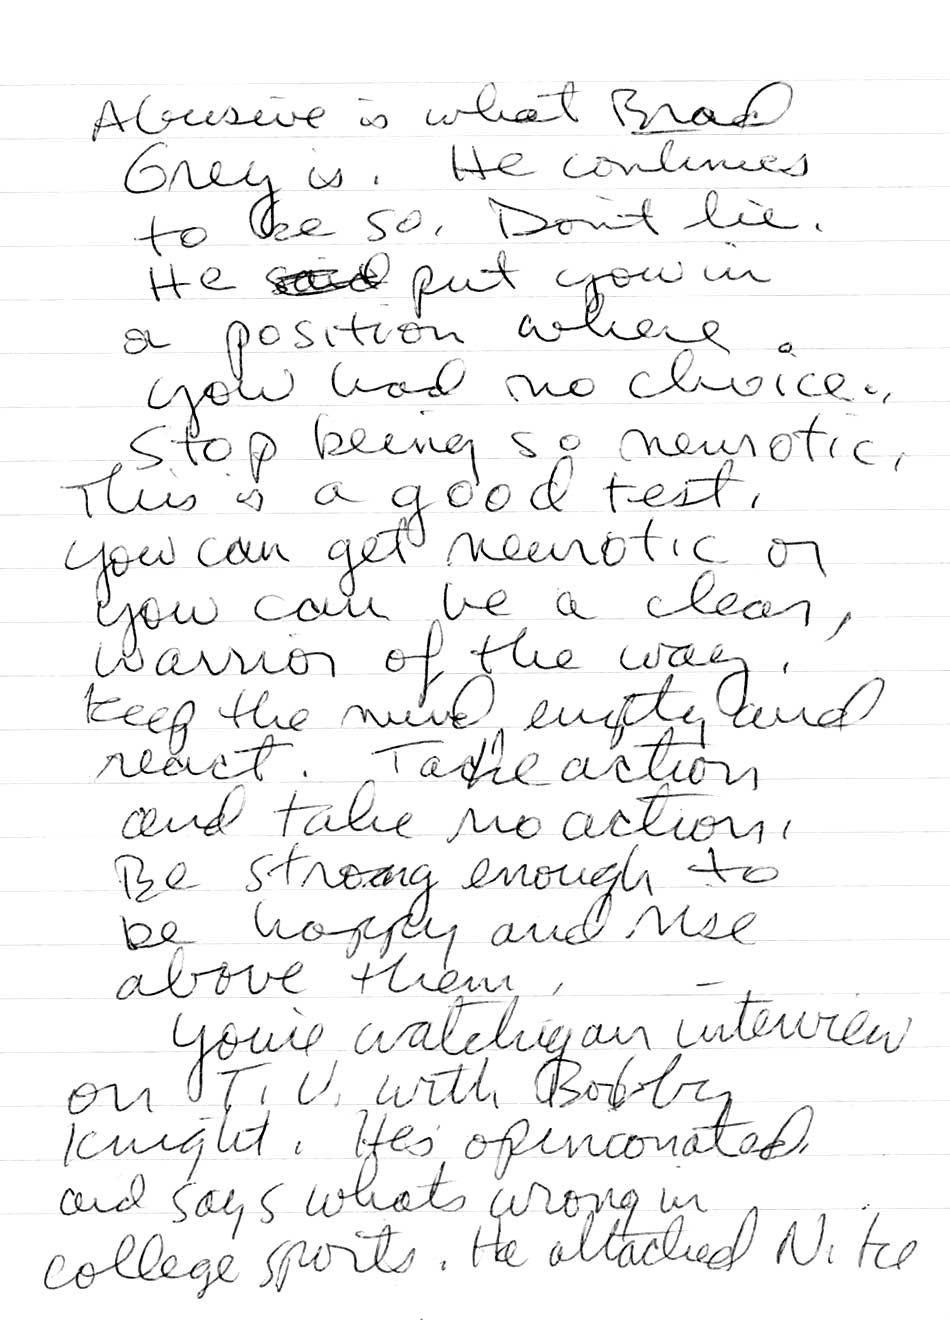 Abusive is what Brad
Grey is. He continues
to be so. Don't lie.
He said put you in
a position where
you had no choice.
Stop being so neurotic.
This is a good test.
You can get neurotic or
you can be a clear,
warrior of the way.
keep the mind empty and
react. Take action
and take no action.
Be strong enough to
be happy and rise
above them. –
You're watching an interview
on T.V. with Bobby
Knight. He's opinconated
and says whats wrong in
college sports. He attacked Nike